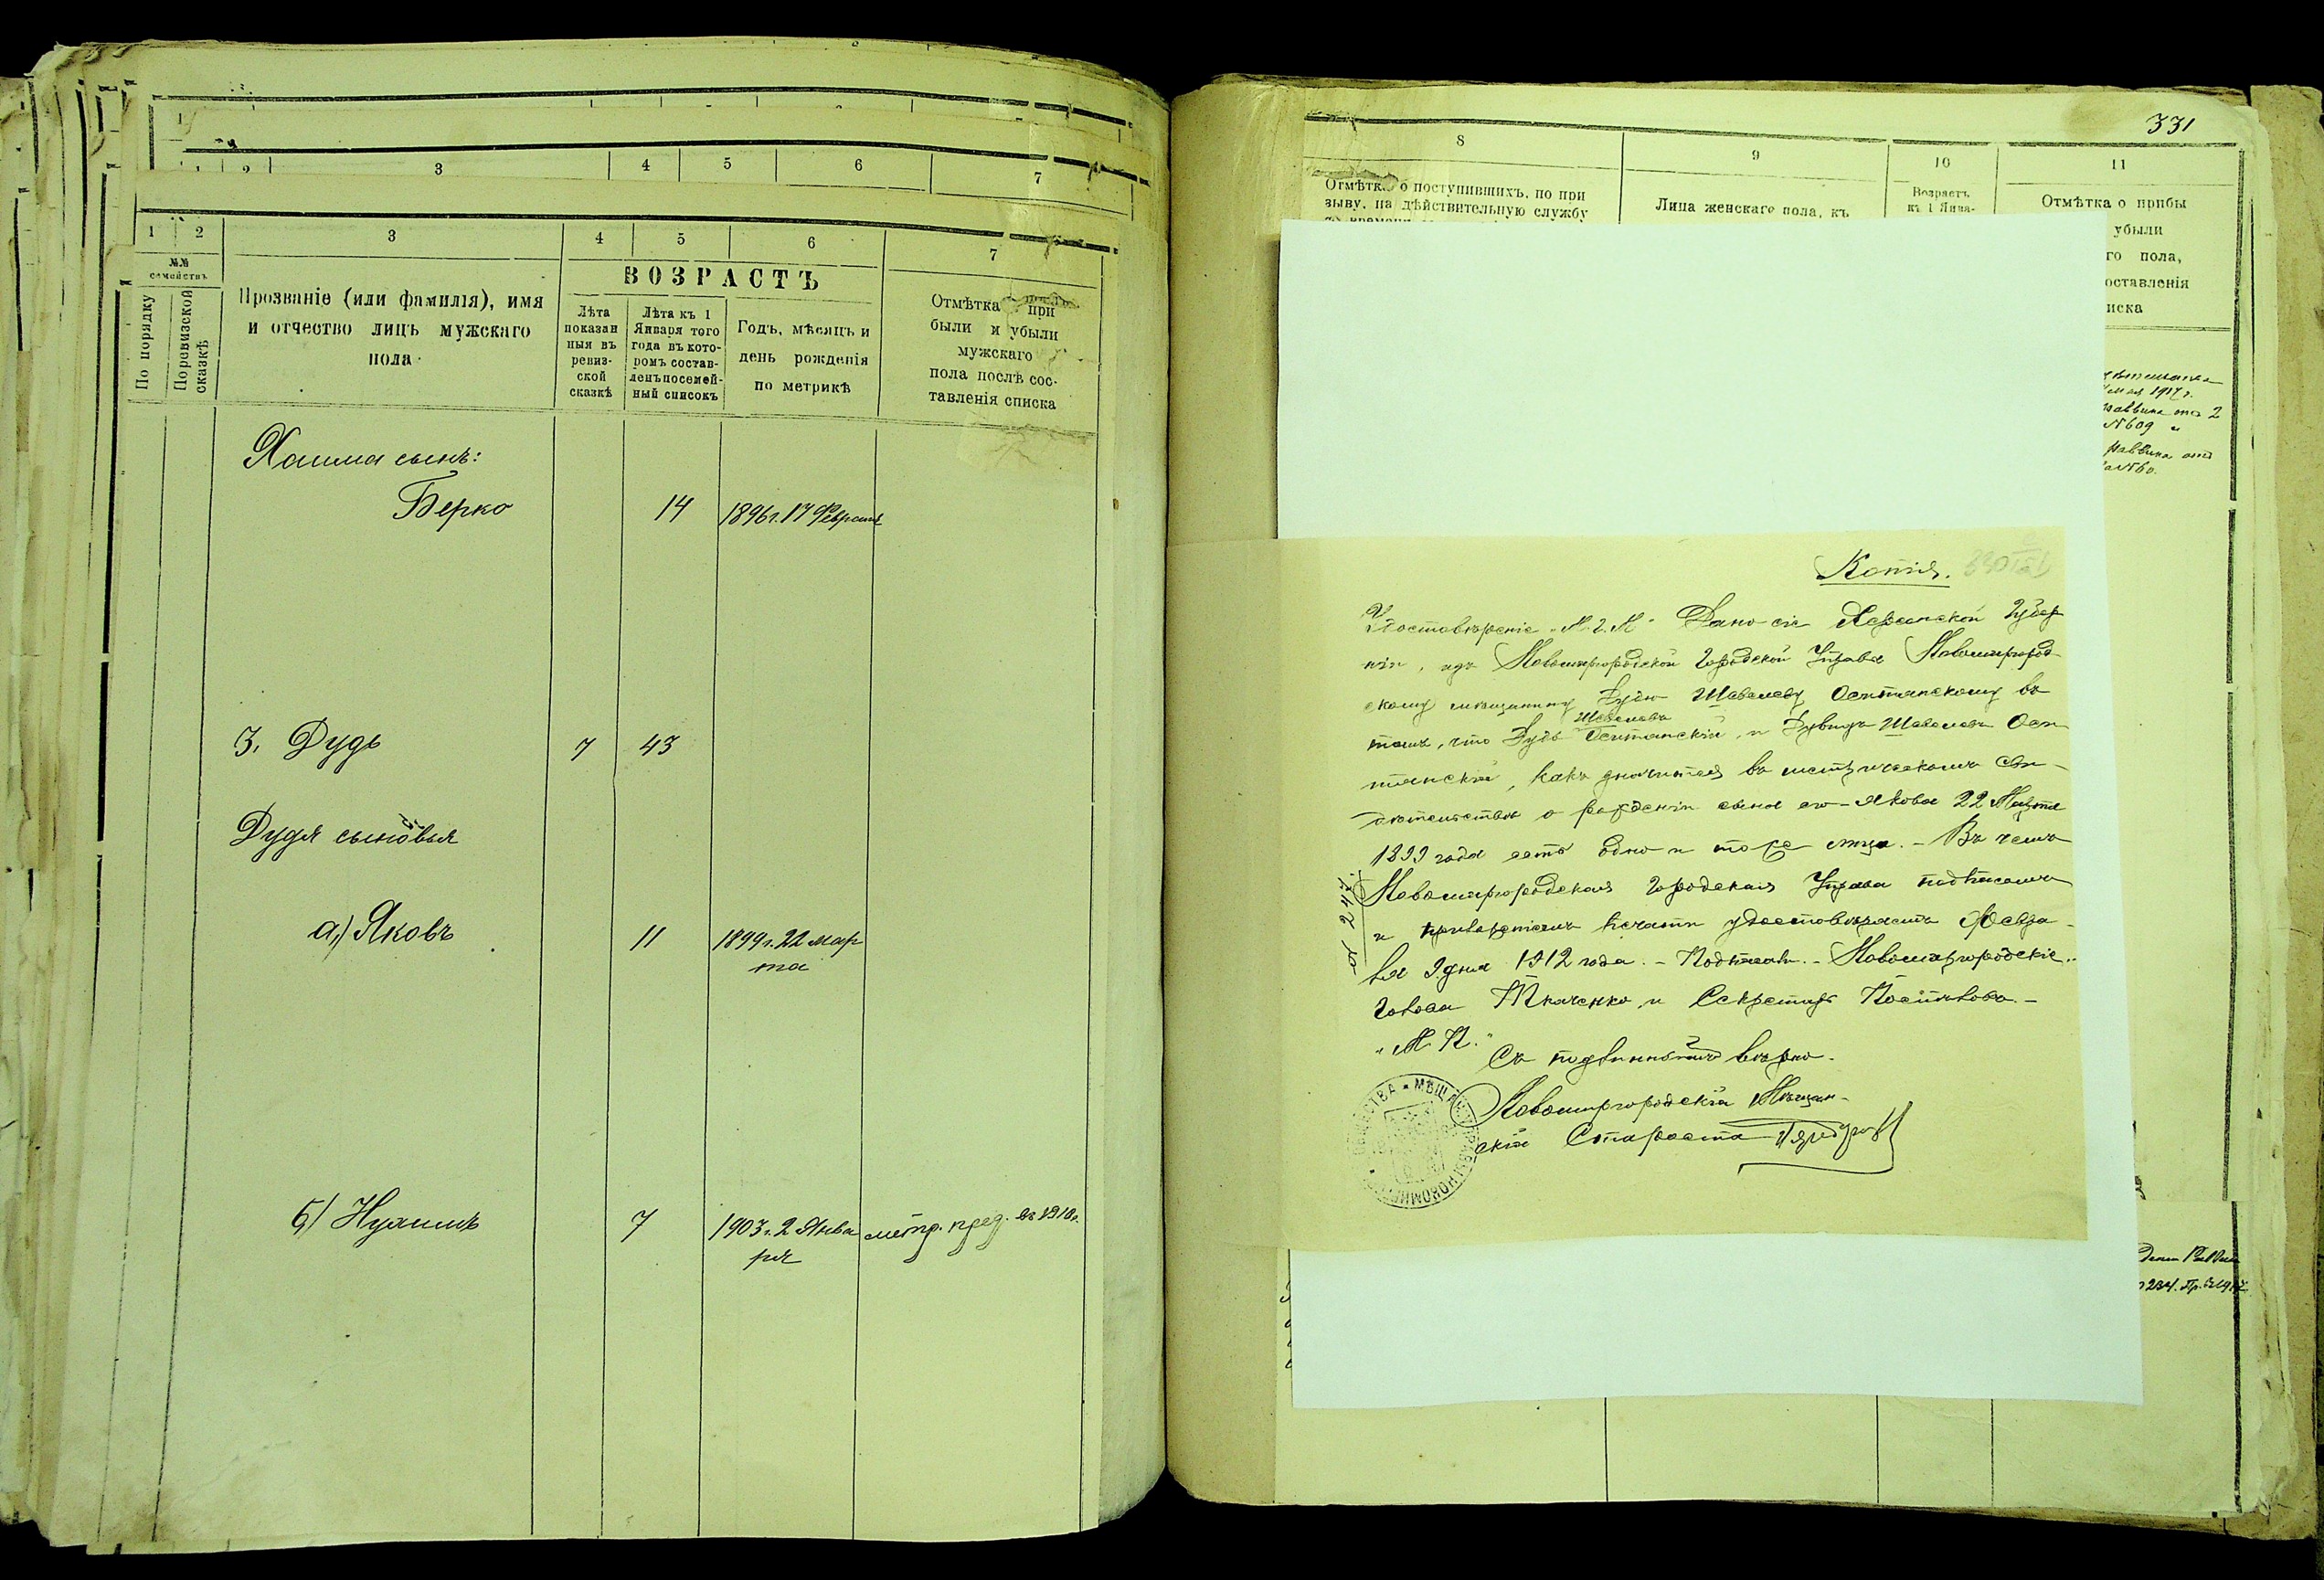 1
1 2 3 4 5 6 7
1 2 3 4 5 6 7
№№ семействъ
По порядку
По ревизской сказкѣ
Прозваніе (или фамилія), имя
и отчество лицъ мужскаго
пола
ВОЗРАСТЪ
Лѣта
показан
ныя въ
ревиз-
ской
сказкѣ
Лѣта къ 1
Января того
года въ кото-
ромъ состав-
ленъ посемей-
ный списокъ
Годъ, мѣсяцъ и
день рожденія
по метрикѣ
Отмѣтка при
были и убыли
мужскаго
пола послѣ сос-
тавленія списка
Хаима сынъ:
Берко 14 1896 г. 17 Февраля
3. Дудь 7 43
Дудя сыновья
а,) Яковъ 11 1899 г. 22 мар
та
б) Нухимъ 7 1903 г. 2 Янва метр. пред. въ 1910 г.
ря
331
8 9 10 11
Отмѣтка о поступившихъ, по при
зыву, на дѣйствительную службу
Лица женскаго пола, къ
Возрастъ
къ 1 Янва-
Отмѣтка о прибы
убыли
го пола,
оставленія
иска
1917 г.
раввина отъ 2
№609
раввина отъ
№60.
Копія.
Удостовѣреніе "М. Г. М." Дано сіе Херсонской Губер
ніи, изъ Новомиргородской Городской Управы Новомиргород-
скому мѣщанину Дудю Шавелеву Осятинскому въ
Шавелевъ
томъ, что Дудь Осятинскій, и Дувидъ Шавелевъ Ося
тинскій, какъ значится въ метрическомъ сви-
дѣтельствѣ о рожденіи сына его - Якова 22 Марта
1899 года есть одно и тоже лицо. - Въ чемъ
Новомиргородская Городская Управа подписомъ
и приложеніемъ печати удостовѣряетъ Февра-
ля 9 дня 1912 года. - Подписали: - Новомиргородскіе:
Голова Ткаченко, и Секретарь
"М. П."
Съ подлиннымъ вѣрно.
Новомиргородскій Мѣщан-
скій Староста
№ 244.
234. Пр.